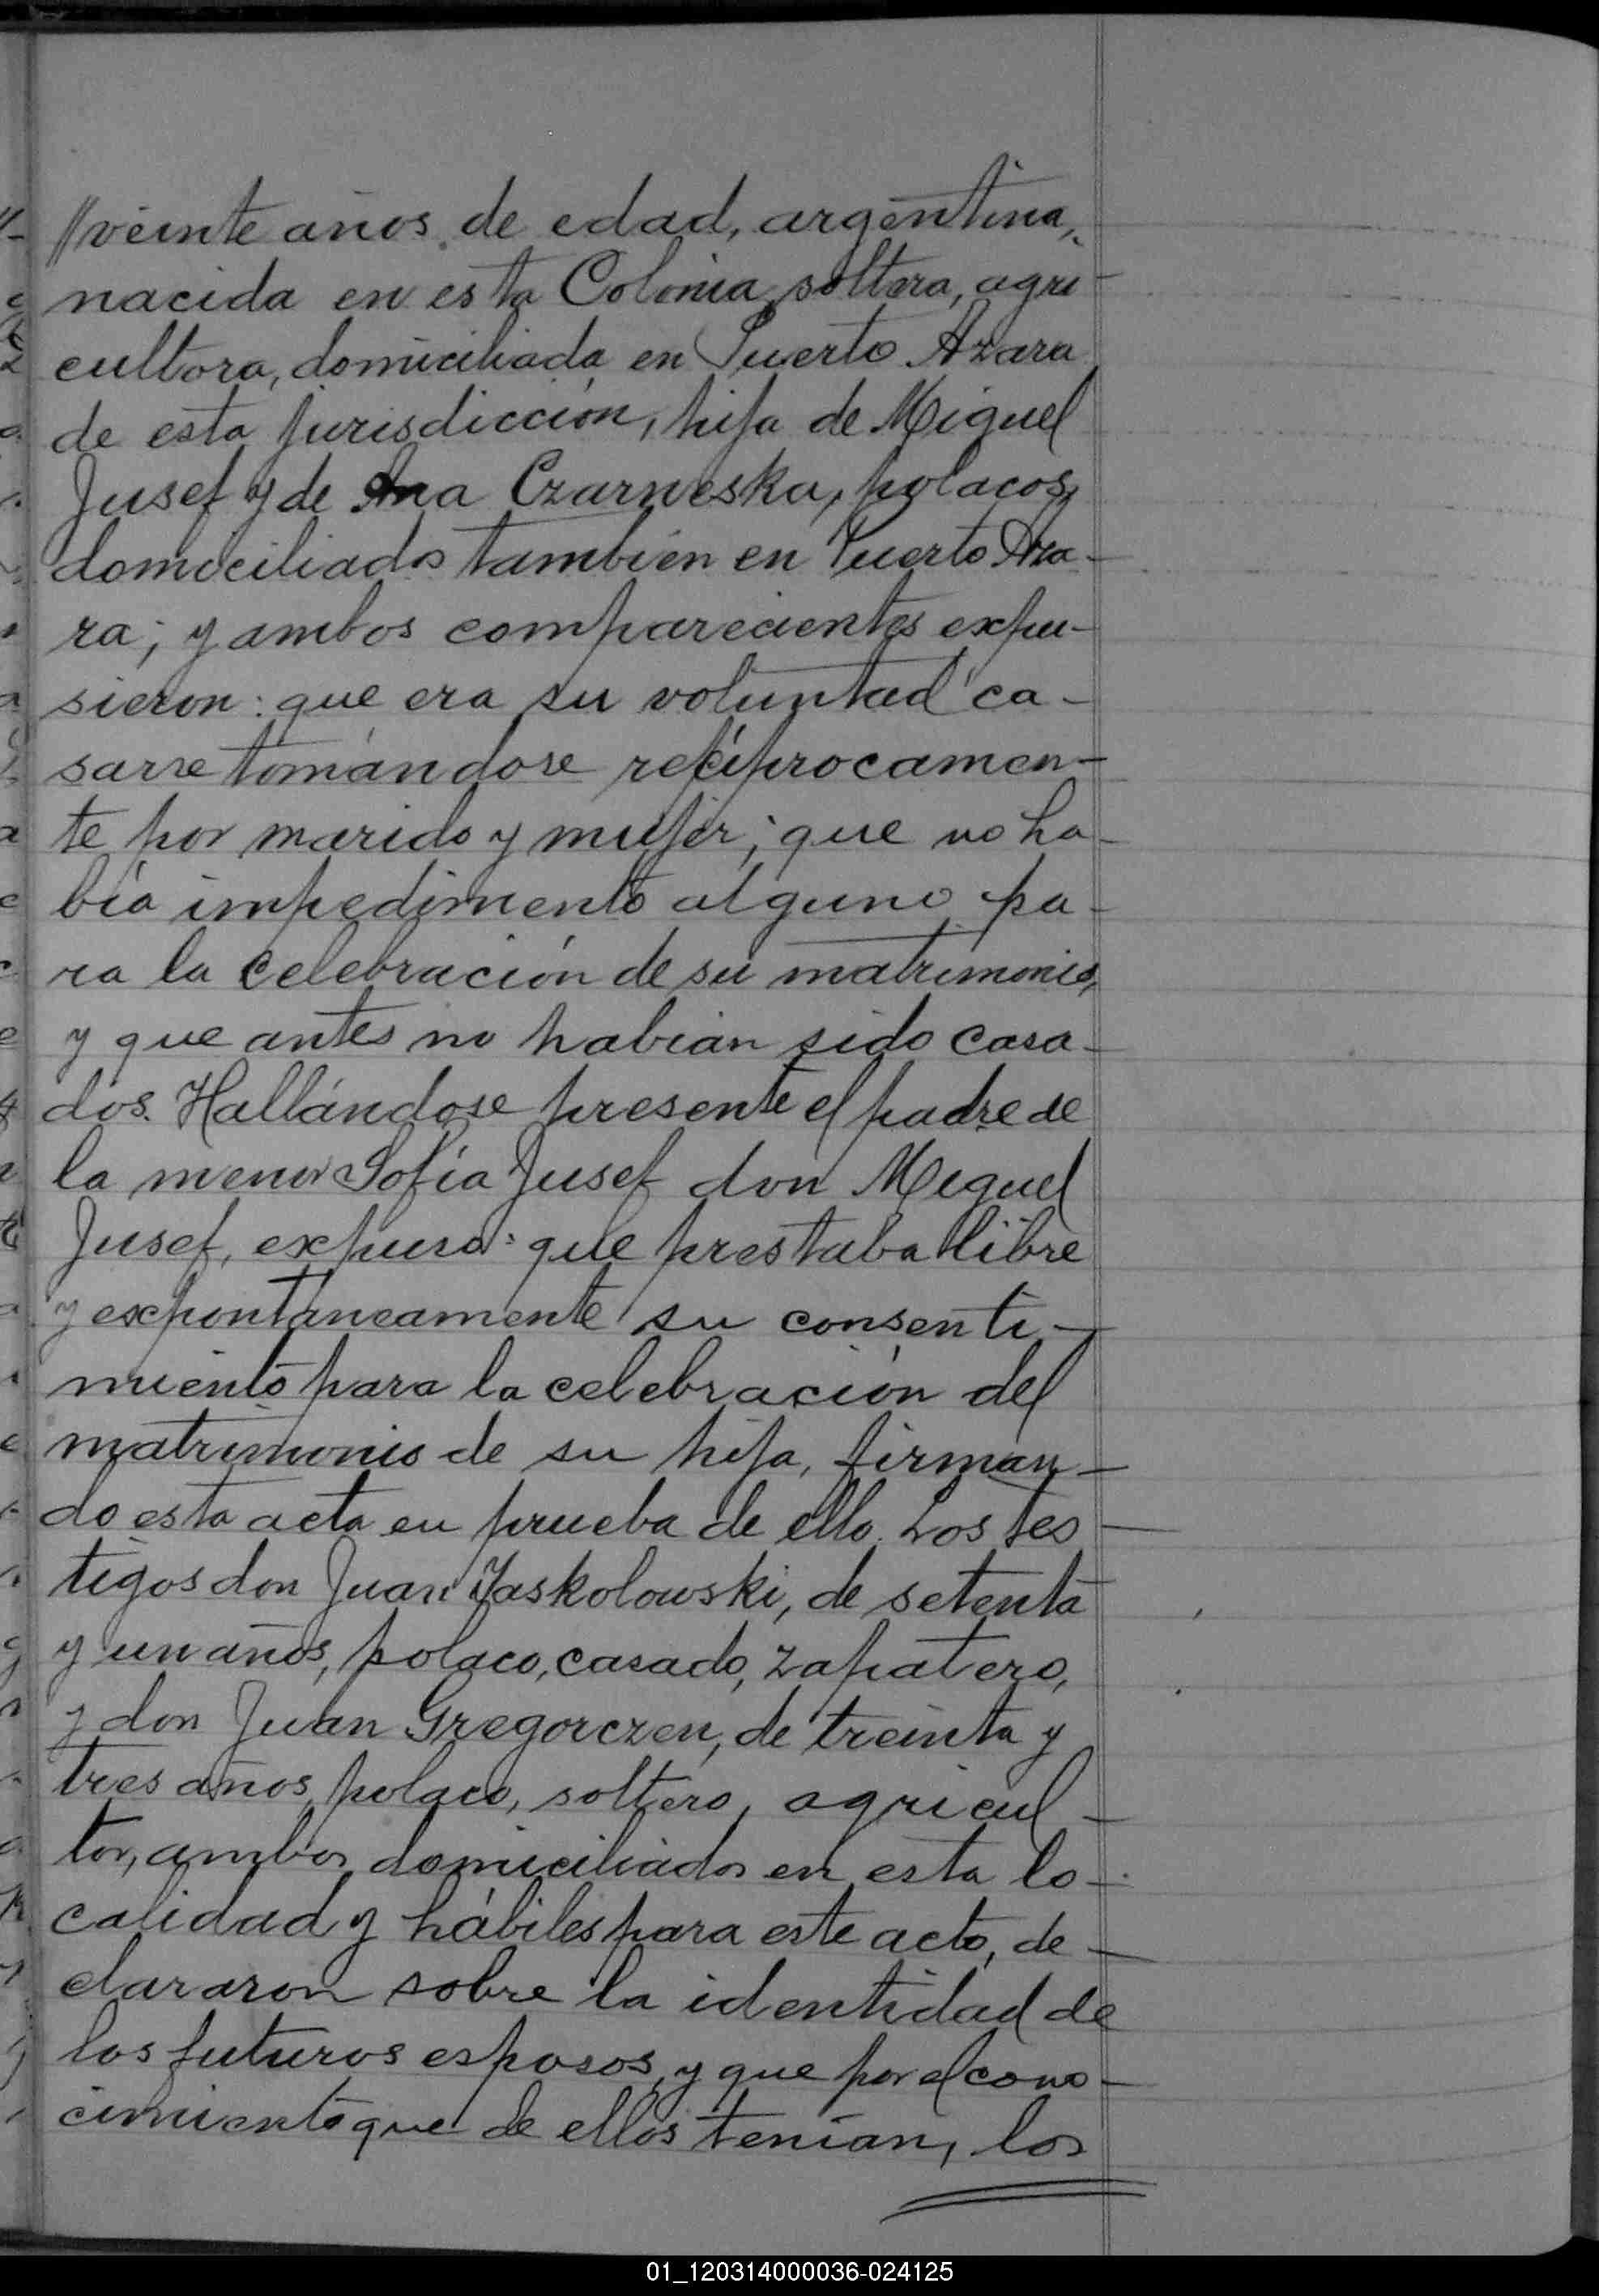 //veinte años de edad, argentina,
nacida en esta Colonia, soltera, agri-
cultora, domiciliada en Puerto Azara
de esta jurisdicción, hija de Miguel
Jusef y de Ana Czarneska, polacos,
domiciliados también en Puerto Aza-
ra; y ambos comparecientes expu-
sieron: que era su voluntad ca-
sarse tomándose recíprocamen-
te por marido y mujer; que no ha-
bía impedimento alguno pa-
ra la celebración de su matrimonio,
y que antes no habían sido casa-
dos. Hallándose presente el padre de
la menor Sofía Jusef don Miguel
Jusef, expuso: que prestaba libre
y expontáneamente su consenti-
miento para la celebración del
matrimonio de su hija, firman-
do esta acta en prueba de ello. Los tes-
tigos don Juan Yaskolowski, de setenta
y un años, polaco, casado, zapatero,
y don Juan Gregorczen, de treinta y
tres años, polaco, soltero, agricul-
tor, ambos domiciliados en esta lo-
calidad y hábiles para este acto, de-
clararon sobre la identidad de
los futuros esposos, y que por el cono-
cimiento que de ellos tenían, los
01_120314000036-024125